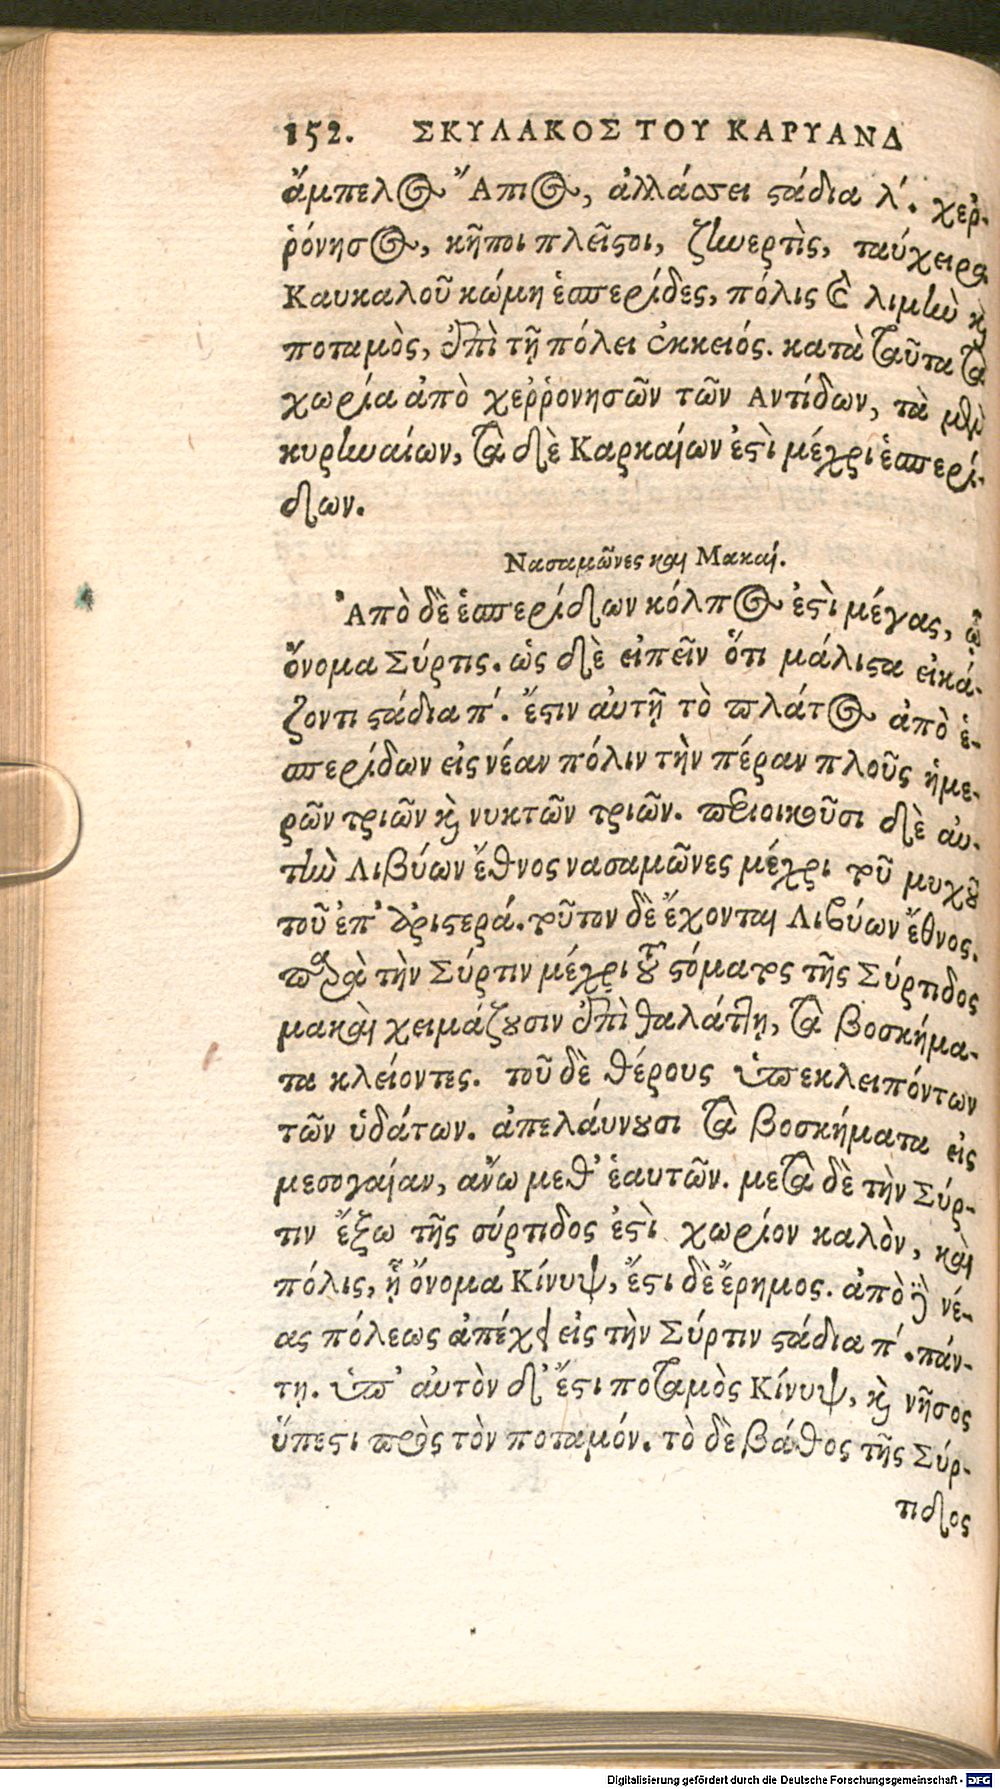 152. ΣΚΥΛΑΚΟΣ ΤΟΥ ΚΑΡΥΑΝΔ
ἄμπελος Ἄπιος, ἀλλάσσει στάδια λ΄. χεῤ-
ῥόνησος, κῆποι πλεῖστοι, ζηνερτὶς, ταύχειρα
Καυκαλοῦ κώμη ἑσπερίδες, πόλις καὶ λιμὴν καὶ
ποταμὸς, ἐπὶ τῇ πόλει ἐκκειός. κατὰ ταῦτα τὰ
χωρία ἀπὸ χεῤῥονησῶν τῶν Αντίδων, τὰ μὲν
κυρηναίων, τὰ δὲ Καρκαίων ἐστὶ μέχρι ἑσπερί-
δων.
Νασαμῶνες καὶ Μακαί.
Ἀπὸ δὲ ἑσπερίδων κόλπος ἐστὶ μέγας, ᾧ
ὄνομα Σύρτις. ὡς δὲ εἰπεῖν ὅτι μάλιστα εἰκά-
ζοντι στάδια π΄. ἔστιν αὐτῇ τὸ πλάτος ἀπὸ ἑ-
σπερίδων εἰς νέαν πόλιν τὴν πέραν πλοῦς ἡμε-
ρῶν τριῶν καὶ νυκτῶν τριῶν. περιοικοῦσι δὲ αὐ-
τὴν Λιβύων ἔθνος νασαμῶνες μέχρι τοῦ μυχοῦ
τοῦ ἐπ᾽ ἀριστερά. τοῦτον δὲ ἔχονται Λιβύων ἔθνος.
παρὰ τὴν Σύρτιν μέχρι τοῦ στόματος τῆς Σύρτιδος
μακαὶ χειμάζουσιν ἐπὶ θαλάττῃ, τὰ βοσκήμα-
τα κλείοντες. τοῦ δὲ θέρους ὑπεκλειπόντων
τῶν ὑδάτων. ἀπελάυνουσι τὰ βοσκήματα εἰς
μεσογαίαν, ἄνω μεθ᾽ ἑαυτῶν. μετὰ δὲ τὴν Σύρ-
τιν ἔξω τῆς σύρτιδος ἐστὶ χωρίον καλὸν, καὶ
πόλις, ᾗ ὄνομα Κίνυψ, ἔστι δὲ ἔρημος. ἀπὸ δὲ νέ-
ας πόλεως ἀπέχει εἰς τὴν Σύρτιν στάδια π΄. πάν-
τῃ. ὑπ᾽ αὐτὸν δ᾽ ἔστι ποταμὸς Κίνυψ, καὶ νῆσος
ὕπεστι πρὸς τὸν ποταμόν. τὸ δὲ βάθος τῆς Σύρ-
τιδος
Digitalisierung gefördert durch die Deutsche Forschungsgemeinschaft - DFG